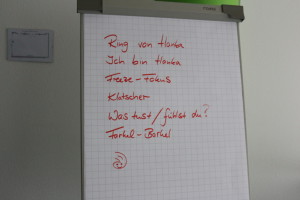 Ring von Hanka
Ich bin Hanka
Freeze-Fokus
Klatscher
Was tust/fühlst du?
Farkel-Borkel